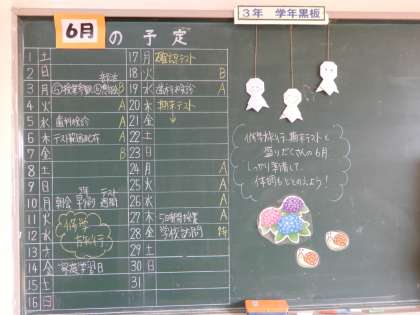 6月の予定
3年 学年黒板
1 土
2 日
3 月 B
4 火 A
5 水 歯科検診 A
6 木 A
7 金 B
8 土
9 日
10 月 朝会 テスト週間
11 火
12 水
13 木
14 金 家庭学習日
15 土
16 日
17 月 確認テスト
18 火 B
19 水 歯科検診 A
20 木 期末テスト
21 金 ↓
22 土
23 日
24 月 A
25 火 A
26 水 A
27 木 5日時間授業 A
28 金 学校訪問 特
29 土
30 日
31
修学旅行
修学旅行、期末テストと
盛りだくさんの6月
しっかり準備して、
体調もととのえよう!